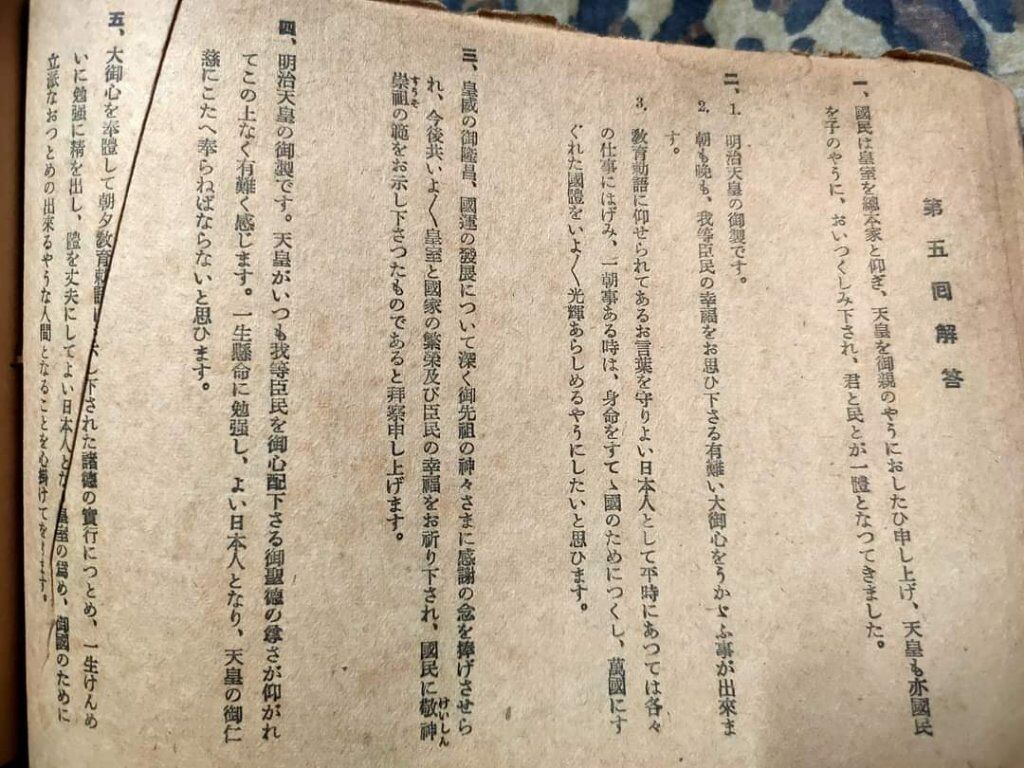 第五回解答
一、國民は皇室を總本家と仰ぎ、天皇を御親のやうにおしたひ申し上げ、天皇も亦國民
を子のやうに、おいつくしみ下され、君と民とが一體となつてきました。
二、1. 明治天皇の御製です。
2. 朝も晩も、我等臣民の幸福をお思ひ下さる有難い大御心をうかゞふ事が出來ま
す。
3. 教育勅語に仰せられてあるお言葉を守りよい日本人として平時にあつては各々
の仕事にはげみ、一朝事ある時は、身命をすてゝ國のためにつくし、萬國にす
ぐれた國體をいよ〱光輝あらしめるやうにしたいと思ひます。
三、皇國の御隆昌、國運の發展について深く御先祖の神々さまに感謝の念を捧げさせら
れ、今後共いよ〱皇室と國家の繁榮及び臣民の幸福をお祈り下され、國民に敬神
けいしん
崇祖の範をお示し下さつたものであると拜察申し上げます。
すうそ
四、明治天皇の御製です。天皇がいつも我等臣民を御心配下さる御聖德の尊さが仰がれ
てこの上なく有難く感じます。一生懸命に勉强し、よい日本人となり、天皇の御仁
慈にこたへ奉らねばならないと思ひます。
五、大御心を奉體して朝夕教育勅語 下された諸德の實行につとめ、一生けんめ
いに勉强に精を出し、體を丈夫にしてよい日本人と 皇室の爲め、御國のために
立派なおつとめの出來るやうな人間となることを心掛けて ます。